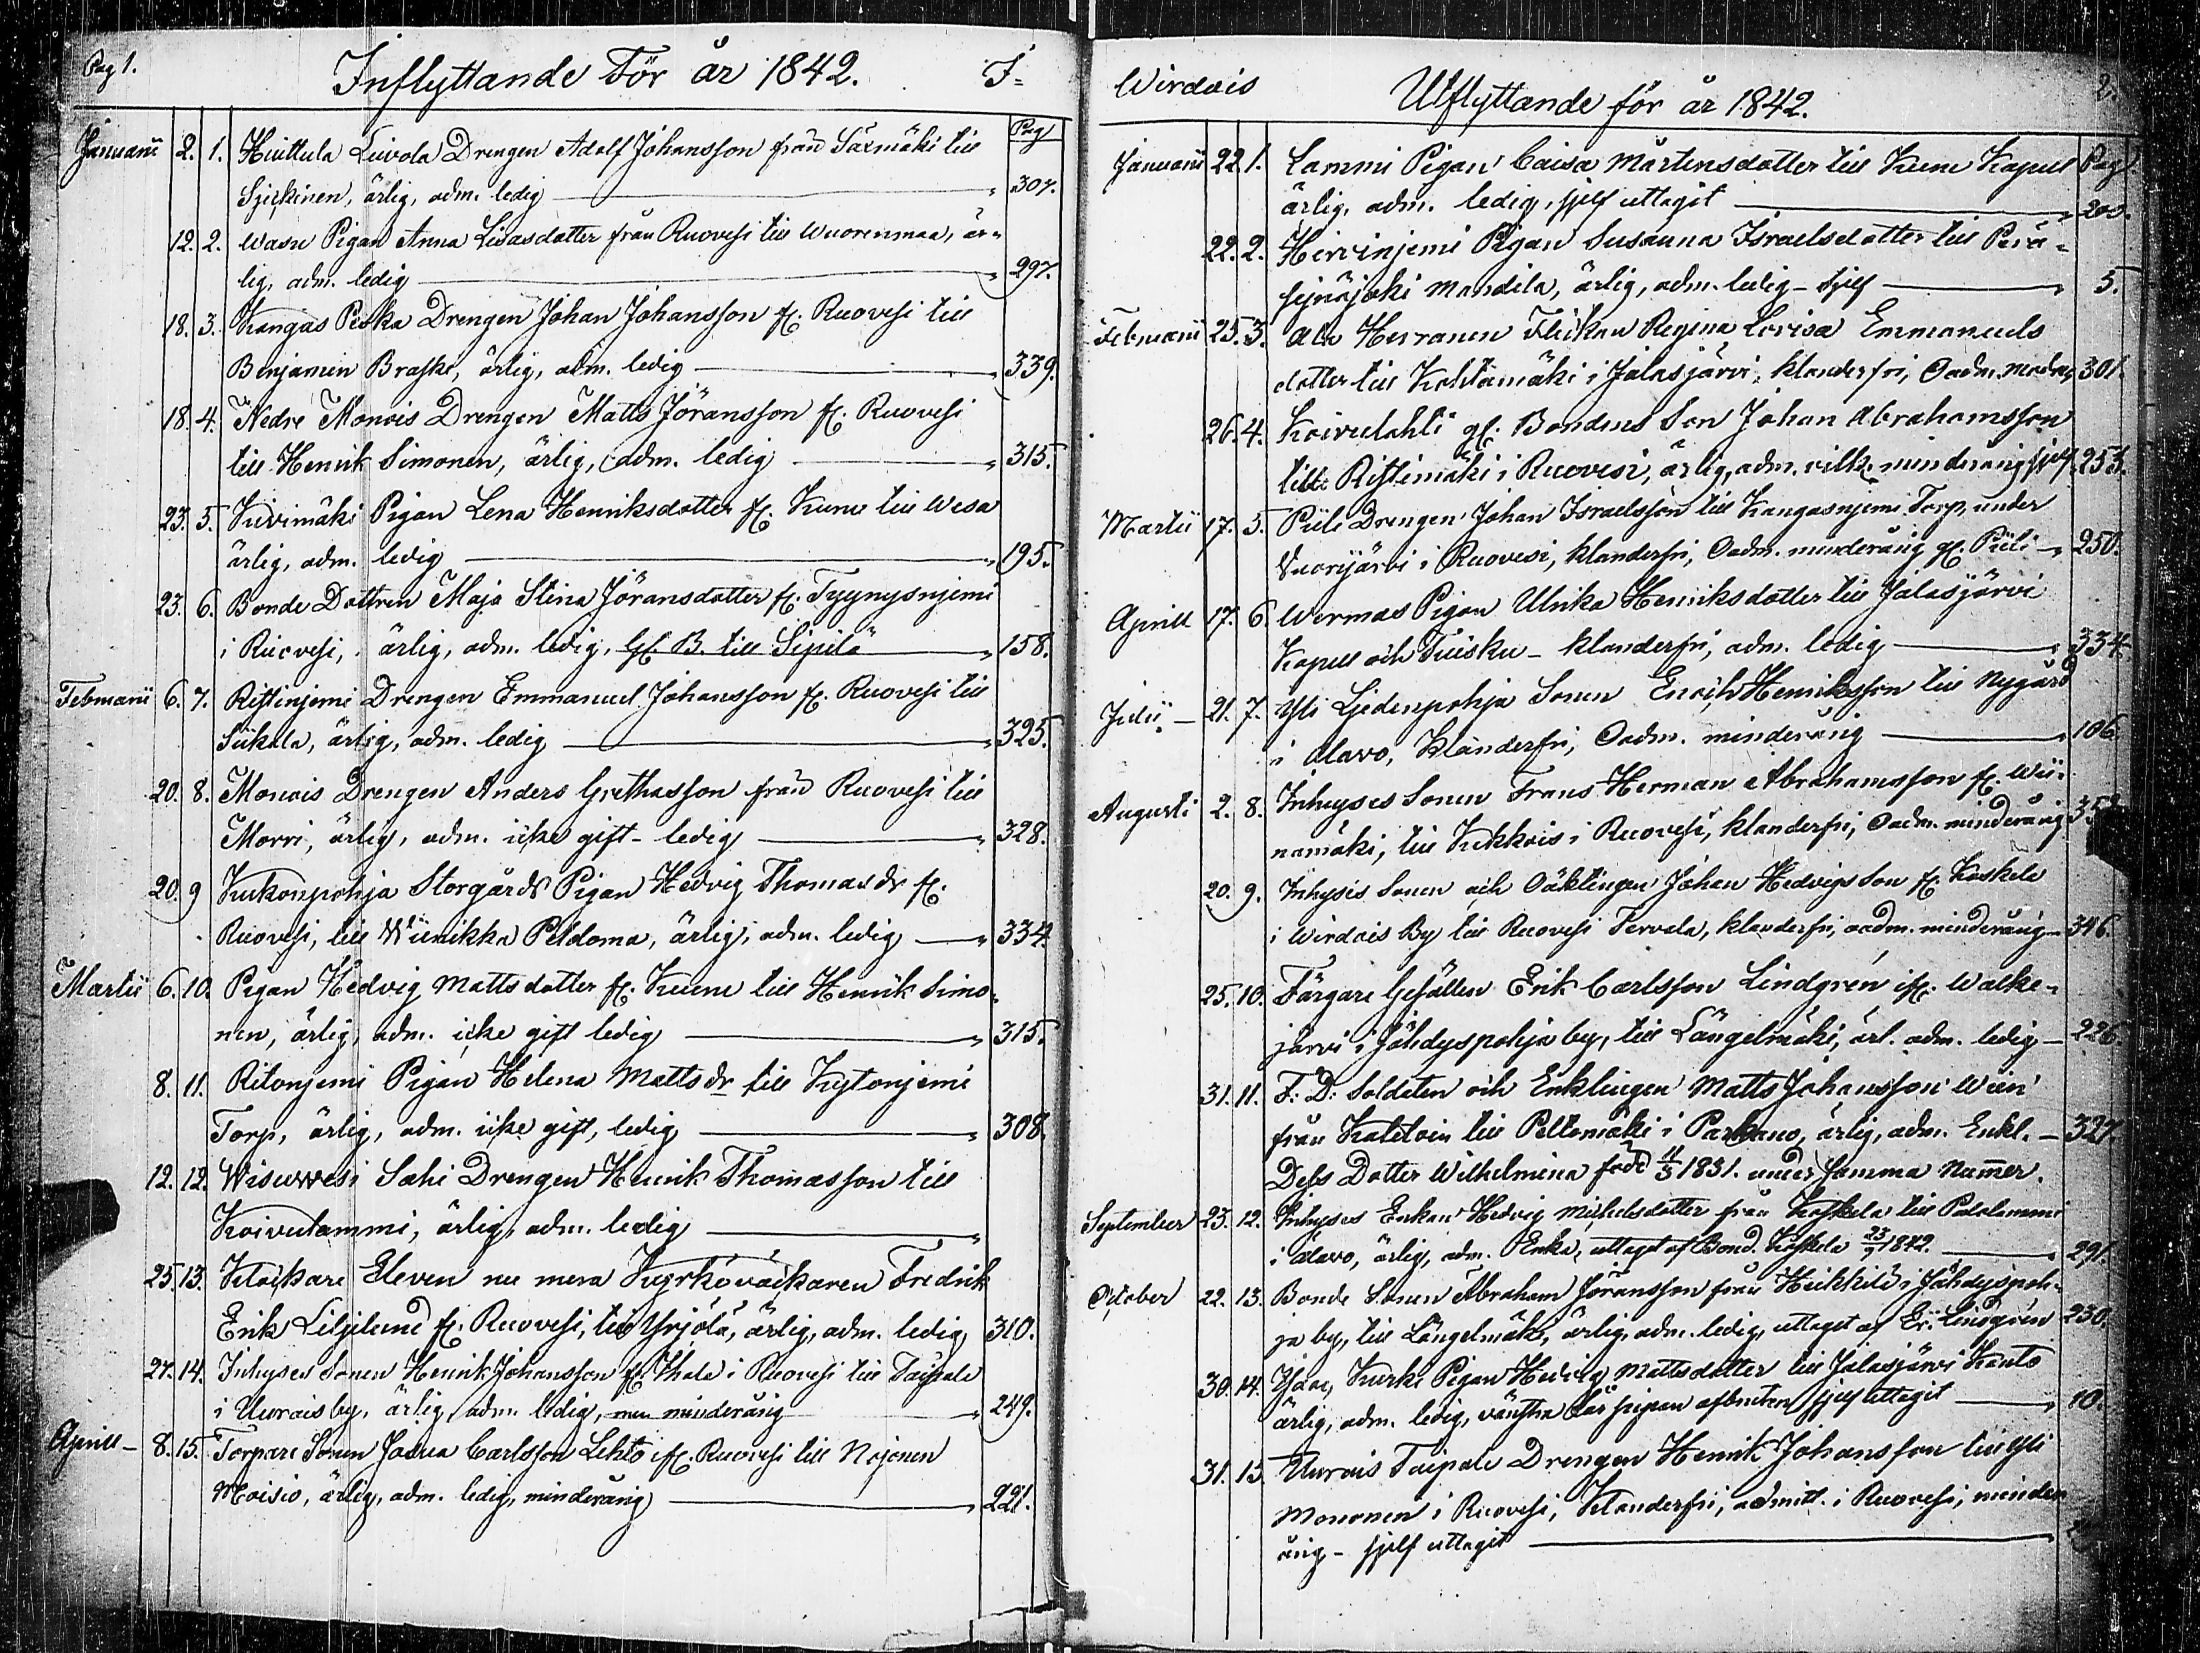 Pag 1.
Inflyttande För år 1842.
I-
Pag
Januarii 2. 1. Huittula Leivola Drengen Adolf Johansson från Säxmäki till
Sjirkinen, ärlig, adm. ledig " 307.
12. 2. Wasu Pigan Anna Lisasdotter från Ruovesi till Wuorenmaa, är-
lig, adm. ledig " 297.
18. 3. Kangas Peska Drengen Johan Johansson fr. Ruovesi till
Benjamin Braske, ärlig, adm. ledig " 339.
18. 4. Nedre Monois Drengen Matts Jöransson fr. Ruovesi
till Henrik Simonen, ärlig, adm. ledig " 315.
23. 5. Kivimäki Pigan Lena Henriksdotter fr. Kuru till Wesa
ärlig, adm. ledig " 195.
23. 6. Bonde Dottren Maja Stina Jöransdotter fr.
i Ruovesi, ärlig, adm. ledig, gf. B. till Sipilä " 158.
Februarii 6. 7. Ristinjemi Drengen Emmanuel Johansson fr. Ruovesi till
Siikala, ärlig, adm. ledig " 325.
20. 8. Monois Drengen Anders Grethasson från Ruovesi till
Morri, ärlig, adm. icke gift - ledig " 328.
20. 9 Kukonpohja Storgårds Pigan Hedvig Thomasdr fr.
Ruovesi, till Wiinikka Peldoma, ärlig, adm. ledig " 334
Martii 6. 10. Pigan Hedvig Mattsdotter fr. Kuru till Henrik Simo-
nen, ärlig, adm. icke gift ledig " 315.
8. 11. Ritonjemi Pigan Helena Mattsdr till Kytonjemi
Torp, ärlig, adm. icke gift, ledig " 308.
12. 12. Wisuvesi Sahi Drengen Henrik Thomasson till
Koivulammi, ärlig, adm. ledig "
25. 13. Klockare Eleven nu mera Kyrkoväckaren Fredrik
Erik Liljelund fr. Ruovesi, till Yrjölä, ärlig, adm. ledig 310.
27. 14. Inhyses Sonen Henrik Johansson fr. Ihala i Ruovesi till Taipale
i Uurais by, ärlig, adm. ledig, men minderårig " 249.
Aprill - 8. 15. Torpare Sonen Josua Carlsson Lehto ifr. Ruovesi till Nojonen
Moisio, ärlig, adm. ledig, minderårig " 221.
Wirdois
Utflyttande för år 1842.
2.
Pag.
Januarii 22. 1. Lammi Pigan Caisa Mårtensdotter till Kuru Kapell
ärlig, adm. ledig, sjelf uttagit " 200.
22. 2. Hirvinjemi Pigan Susanna Israelsdotter till Perä-
sejnäjoki Mandila, ärlig, adm. ledig - sjelf " 5.
Februarii 25. 3. Ala Herranen Flickan Regina Lovisa Emmanuels
dotter till Kohtamäki i Jalasjärvi, klanderfri, Oadm. 301.
26. 4. Koivulahti gf. Bondens Son Johan Abrahamsson
till Ristimäki i Ruovesi, ärlig, adm. minderårig sjelf 253.
Martii 17. 5. Piili Drengen Johan Israelsson till Kangasnjemi Torp, under
Vuorijärvi i Ruovesi, klanderfri, Oadm. minderårig gf. Piili - " 250.
Aprill 17. 6. Wermas Pigan Ulrika Henriksdotter till Jalasjärvi
Kapell och Tuisku - klanderfri, adm. ledig " 334.
Julii - 21. 7. Yli Ljedenpohja Sonen Enoch Henriksson till Nygård
i Alavo, Klanderfri, Oadm. minderårig " 106.
Augusti 2. 8. Inhyses Sonen Frans Herman Abrahamsson fr. Wii-
namäki, till Kukkois i Ruovesi, klanderfri, Oadm. minderårig
20. 9. Inhysis Sonen och Oäktingen Johan Hedvigs Son fr. Koskela
i Wirdois By till Ruovesi Tervala, klanderfri, oadm. minderårig - 346.
25. 10. Färgare Gesällen Erik Carlsson Lindgrén ifr. Walke-
järvi i Jähdyspohja by, till Längelmäki, ärl. adm. ledig - 226
31. 11. F: D: Soldaten och Enklingen Matts Johansson Wien
från Kotiloin till Peltomäki i Parkano, ärlig, adm. Enkl. - 327.
Dess Dotter Wilhelmina född 11/5 1831. under samma Numer.
September 23. 12. Inhyses Enkan Hedvig Michelsdotter från Koskela till Palolammi
i Alavo, ärlig, adm. Enka, uttagit af Bond. Koskela 23/9 1842. " 291.
October 22. 13. Bonde Sonen Abraham Jöransson från Heikkilä i Jähdyspoh-
ja by, till Längelmäki, ärlig, adm. ledig, uttagit af Er. Lindgrén 230.
30. 14. Kurki Pigan Hedvig Mattsdotter till Jalasjärvi Kauto
ärlig, adm. ledig, vänstra afbruten sjelf uttagit " 10.
31. 15. Uurais Taipale Drengen Henrik Johansson till Yli
Mononen i Ruovesi, Klanderfri, admitt. i Ruovesi, minder
årig - sjelf uttagit